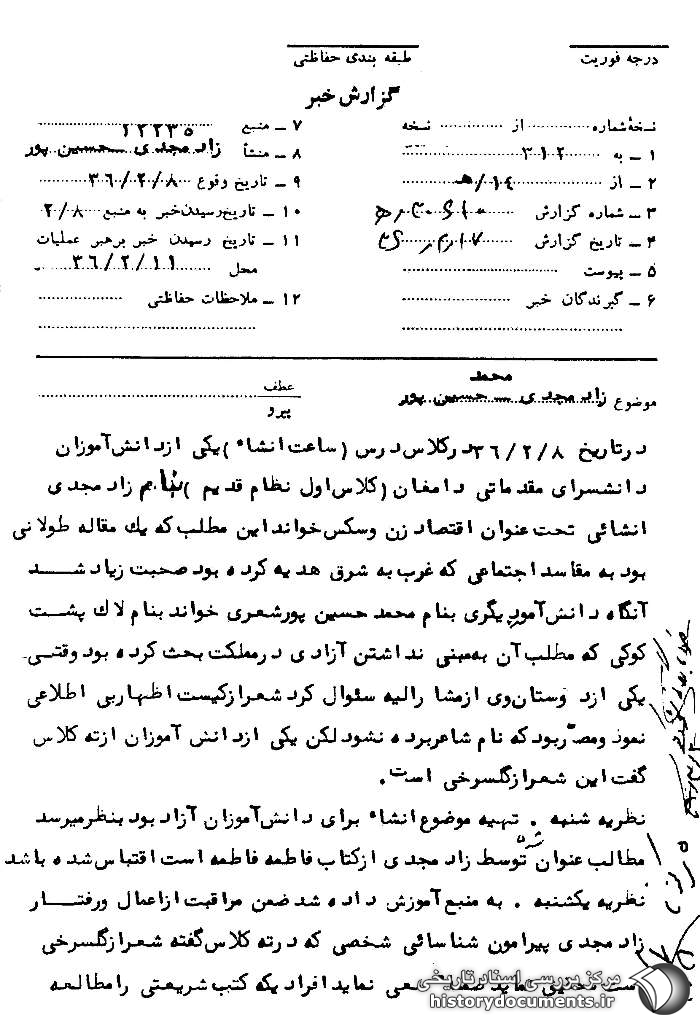 درجه فوریت
طبقه بندی حفاظتی
گزارش خبر
نسخهٔ شماره ............ از ............ نسخه
۱ ــ به ۳۱۲
۲ ــ از ۱۴/هـ
۳ ــ شماره گزارش
۴ ــ تاریخ گزارش
۵ ــ پیوست
۶ ــ گیرندگان خبر
۷ ــ منبع ۱۲۲۳۵
۸ ــ منشأ زاد مجدی ــ حسین پور
۹ ــ تاریخ وقوع ۳۶/۲/۸
۱۰ ــ تاریخ رسیدن خبر به منبع ۲/۸
۱۱ ــ تاریخ رسیدن خبر برهبر عملیات
محل ۳۶/۲/۱۱
۱۲ ــ ملاحظات حفاظتی
محمد
موضوع زاد مجدی ــ حسین پور
عطف
پیرو
در تاریخ ۳۶/۲/۸ در کلاس درس (ساعت انشاء) یکی از دانش آموزان
دانشسرای مقدماتی دامغان (کلاس اول نظام قدیم) بنام زاد مجدی
انشائی تحت عنوان اقتصاد زن و سکس خواند این مطلب که یك مقاله طولانی
بود به مفاسد اجتماعی که غرب به شرق هدیه کرده بود صحبت زیاد شد
آنگاه دانش آموز دیگری بنام محمد حسین پور شعری خواند بنام لاك پشت
کوکی که مطلب آن به مبنی نداشتن آزادی در مملکت بحث کرده بود وقتی
یکی از دوستان وی از مشارالیه سئوال کرد شعر از کیست اظهار بی اطلاعی
نمود و مصرّ بود که نام شاعر برده نشود لکن یکی از دانش آموزان از ته کلاس
گفت این شعر از گلسرخی است.
نظریه شنبه . تهیه موضوع انشاء برای دانش آموزان آزاد بود بنظر میرسد
مطالب عنوان شده توسط زاد مجدی از کتاب فاطمه فاطمه است اقتباس شده باشد
نظریه یکشنبه . به منبع آموزش داده شد ضمن مراقبت از اعمال و رفتار
زاد مجدی پیرامون شناسائی شخصی که در ته کلاس گفته شعر از گلسرخی
است نماید سعی نماید افرادیکه کتب شریعتی را مطالعه
مرکز بررسی اسناد تاریخی
historydocuments.ir